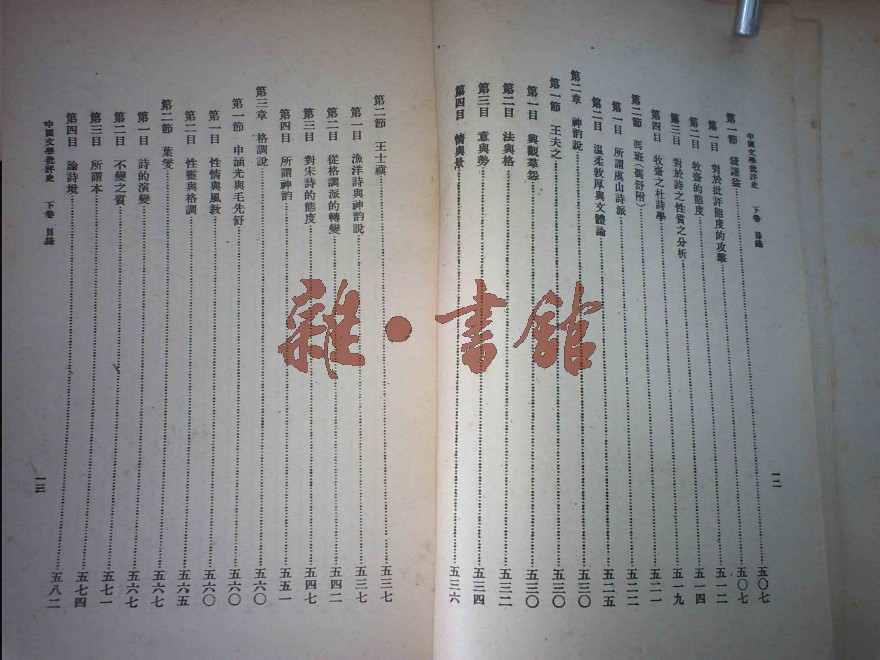 中國文學批評史 下卷 目錄
第一節 錢謙益……五〇七
第一目 對於批評態度的攻擊……五〇七
第二目 牧齋的態度……五一二
第三目 對於詩之性質之分析……五一四
第四目 牧齋之杜詩學……五一九
第二節 馮班(馮舒附)……五二一
第一目 所謂虞山詩派……五二二
第二目 溫柔敦厚與文體論……五二五
第二章 神韵說……五三〇
第一節 王夫之……五三〇
第一目 興觀羣怨……五三〇
第二目 法與格……五三二
第三目 意與勢……五三四
第四目 情與景……五三六
一二
第二節 王士禛……五三七
第一目 漁洋詩與神韵說……五三七
第二目 從格調派的轉變……五四二
第三目 對宋詩的態度……五四七
第四目 所謂神韵……五五一
第三章 格調說……五六〇
第一節 申涵光與毛先舒……五六〇
第一目 性情與風教……五六〇
第二目 性靈與格調……五六五
第二節 葉燮……五六七
第一目 詩的演變……五六七
第二目 不變之質……五七一
第三目 所謂本……五七四
第四目 論詩境……五八二
中國文學批評史 下卷 目錄
一三
雜·書館